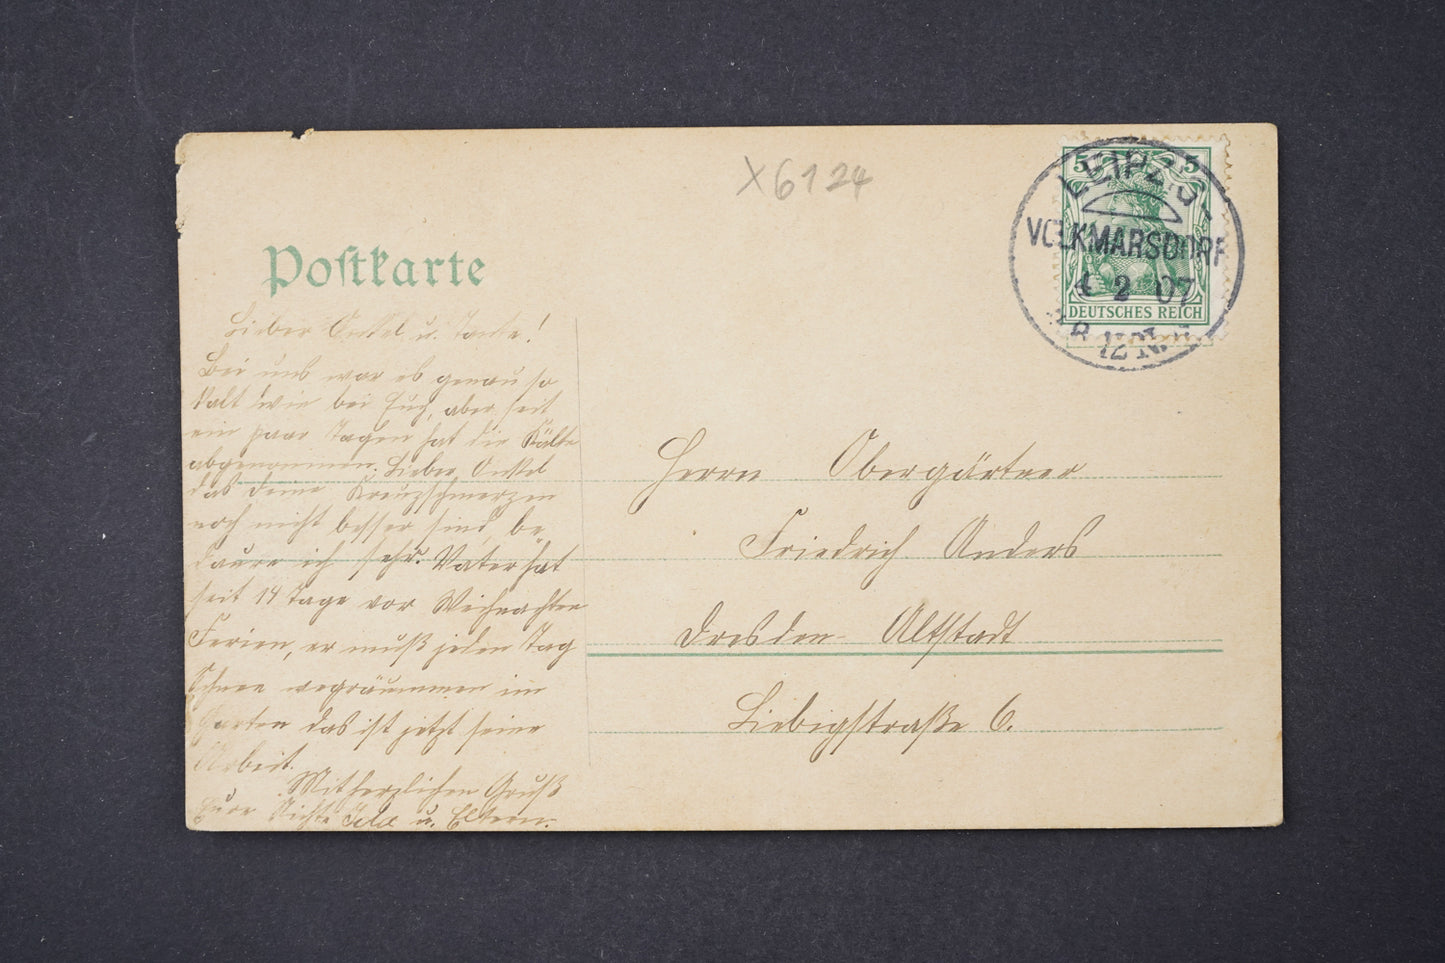 X6124
Postkarte
5 5
DEUTSCHES REICH
LEIPZIG-
VOLKMARSDORF
2 07
Lieber Onkel u. Tante!
Bei uns war es genau so
kalt wie bei Euch, aber seit
ein paar Tagen hat die Kälte
abgenommen. Lieber Onkel
das deine Kreuzschmerzen
noch nicht besser sind, be
daure ich sehr. Vater hat
seit 14 Tage vor Weihnachten
Ferien, er muß jeden Tag
Schnee wegräummen im
Garten das ist jetzt seine
Arbeit.
Mit herzlichen Gruß
Eure Nichte u. Eltern.
Herrn Obergärtner
Friedrich Anders
Dresden-Altstadt
Liebigstraße 6.